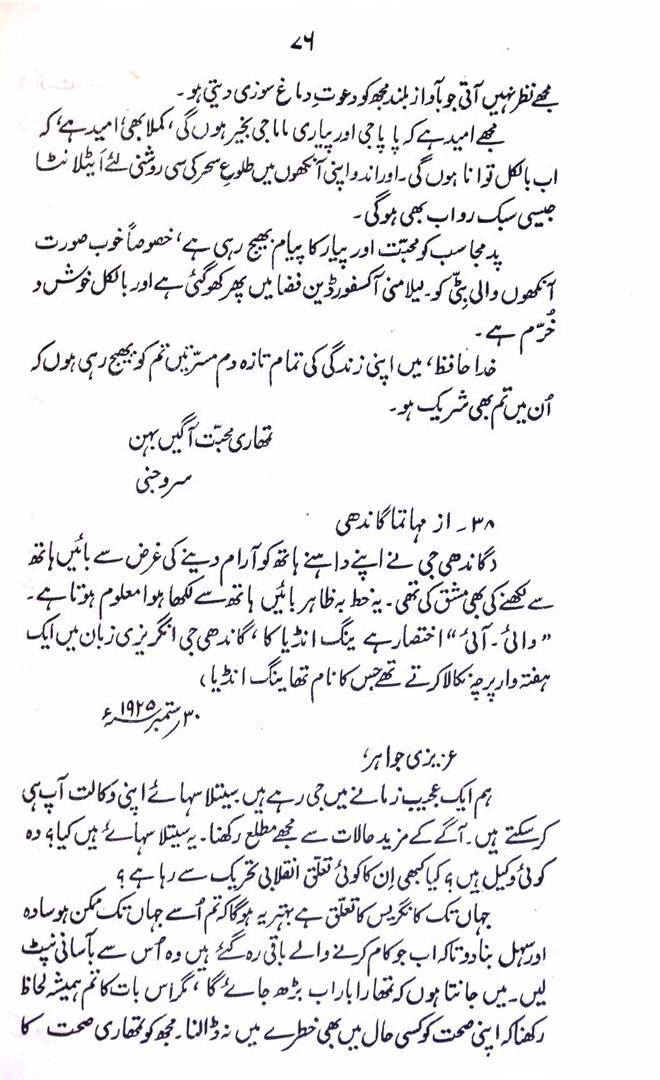 ۷۶
مجھے نظر نہیں آتی جو بآواز بلند مجھ کو دعوتِ دماغ سوزی دیتی ہو۔
مجھے امید ہے کہ پاپا جی اور پیاری ماما جی بخیر ہوں گی، کملا بھی امید ہے، کہ
اب بالکل توانا ہوں گی۔ اور اندو اپنی آنکھوں میں طلوعِ سحر کی سی روشنی لئے اَیٹلانٹا
جیسی سبک رو اب بھی ہو گی۔
پدمجا سب کو محبّت اور پیار کا پیام بھیج رہی ہے، خصوصاً خوب صورت
آنکھوں والی بِٹّی کو۔ لیلامنی آکسفورڈین فضا میں پھر کھو گئی ہے اور بالکل خوش و
خُرّم ہے۔
خدا حافظ، میں اپنی زندگی کی تمام تازہ دم مسرّتیں تم کو بھیج رہی ہوں کہ
اُن میں تم بھی شریک ہو۔
تمھاری محبّت آگیں بہن
سروجنی
۳۸۔ از مہاتما گاندھی
(گاندھی جی نے اپنے داہنے ہاتھ کو آرام دینے کی غرض سے بائیں ہاتھ
سے لکھنے کی بھی مشق کی تھی۔ یہ خط بہ ظاہر بائیں ہاتھ سے لکھا ہوا معلوم ہوتا ہے۔
”وائی۔ آئی“ اختصار ہے ینگ انڈیا کا، گاندھی جی انگریزی زبان میں ایک
ہفتہ وار پرچہ نکالا کرتے تھے جس کا نام تھا ینگ انڈیا)
۳۰ ستمبر ۱۹۲۵ء
عزیزی جواہر،
ہم ایک عجیب زمانے میں جی رہے ہیں سیتلا سہائے اپنی وکالت آپ ہی
کر سکتے ہیں۔ آگے کے مزید حالات سے مجھے مطلع رکھنا۔ یہ سیتلا سہائے ہیں کیا؟ وہ
کوئی وکیل ہیں؟ کیا کبھی اِن کا کوئی تعلق انقلابی تحریک سے رہا ہے؟
جہاں تک کانگریس کا تعلّق ہے بہتر یہ ہو گا کہ تم اُسے جہاں تک ممکن ہو سادہ
اور سہل بنا دو تاکہ اب جو کام کرنے والے باقی رہ گئے ہیں وہ اُس سے بآسانی نپٹ
لیں۔ میں جانتا ہوں کہ تمھارا بار اب بڑھ جائے گا، مگر اس بات کا تم ہمیشہ لحاظ
رکھنا کہ اپنی صحت کو کسی حال میں بھی خطرے میں نہ ڈالنا۔ مجھ کو تمھاری صحت کا